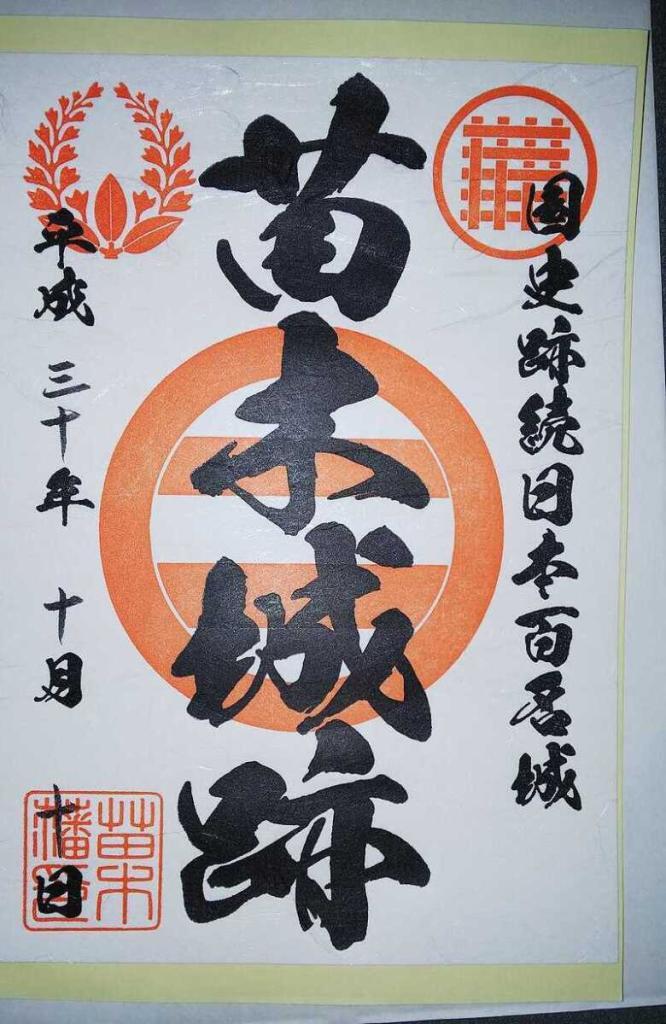 国史跡続日本百名城
苗木城跡
平成 三十年 十月 十日
苗木
藩